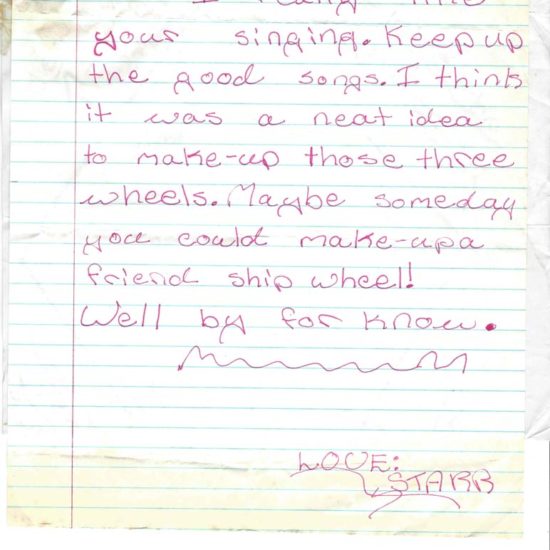 I really like
your singing. Keep up
the good songs. I think
it was a neat idea
to make-up those three
wheels. Maybe someday
you could make-up a
friend ship wheel!
Well by for know.
LOVE:
STARR